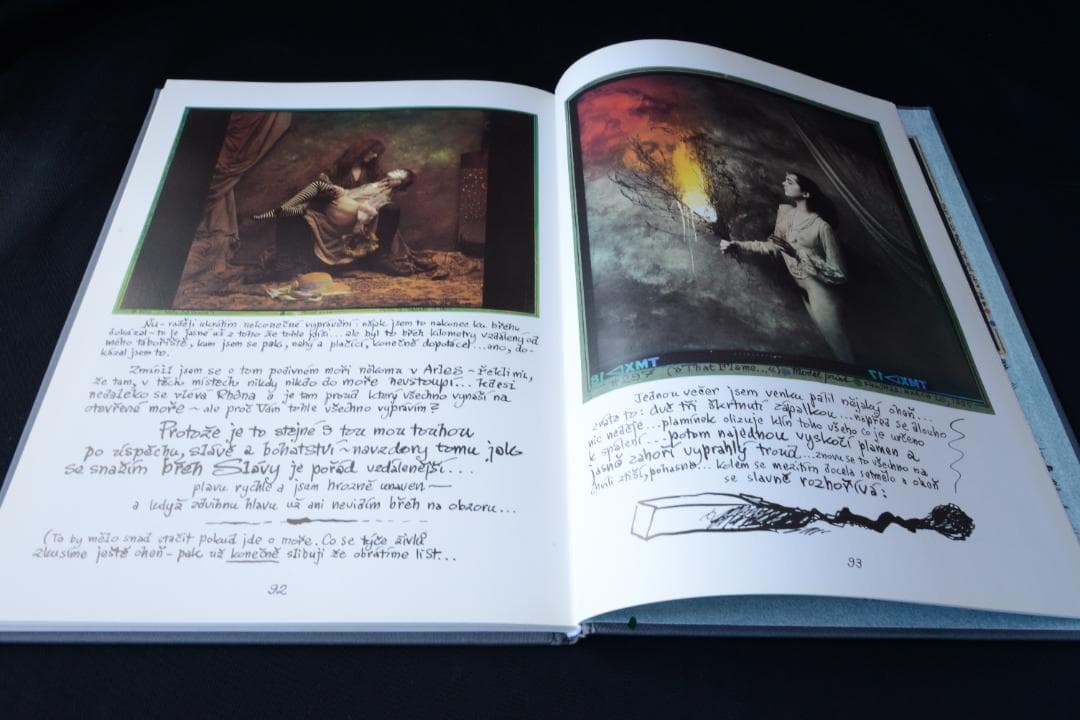 Nu - raději ukrátím nekonečné vyprávění: nějak jsem to nakonec ku břehu
dokázal - to je jasné už z toho že tohle píši... ale byl to břeh kilometry vzdálený od
mého tábořiště, kam jsem se pak, nahý a plačící, konečně dopotácel... ano, do-
kázal jsem to.
Zmínil jsem se o tom podivném moři někomu v Arles - řekli mi,
že tam, v těch místech nikdy nikdo do moře nevstoupí... kdesi
nedaleko se vlévá Rhôna a je tam proud který všechno vynáší na
otevřené moře - ale proč Vám tohle všechno vyprávím?
Protože je to stejné s tou mou touhou
po úspěchu, slávě a bohatství - navzdory tomu jak
se snažím břeh Slávy je pořád vzdálenější...
plavu rychle a jsem hrozně unaven -
a když zdvihnu hlavu už ani nevidím břeh na obzoru...
(To by mělo snad stačit pokud jde o moře. Co se týče živlů
zkusíme ještě oheň - pak už konečně slibuji že obrátíme list...
92
#297 ("That Flame...") Model print
Jednou večer jsem venku pálil nějaký oheň...
znáte to: dvě tři škrtnutí zápalkou... napřed se dlouho
nic neděje... plamínek olizuje klín toho všeho co je určeno
k spálení... potom najednou vyskočí plamen a
jasně zahoří vyprahlý troud... znovu se to všechno na
chvíli ztiší, pohasne... kolem se mezitím docela setmělo a oheň
se slavně rozhořívá:
93